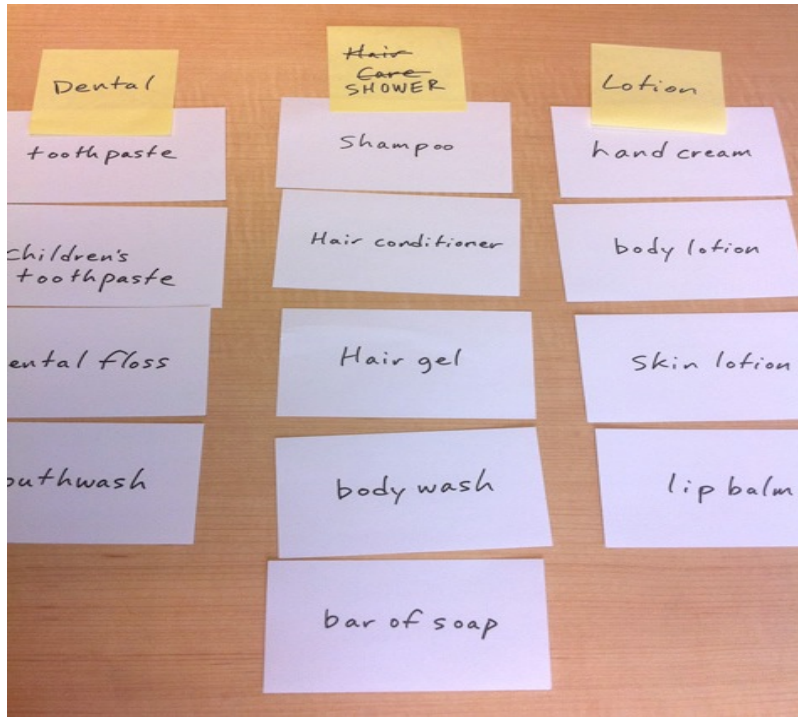 Dental
toothpaste
Children's
toothpaste
ental floss
outhwash
Hair
Care
SHOWER
Shampoo
Hair conditioner
Hair gel
body wash
bar of soap
Lotion
hand cream
body lotion
skin lotion
lip balm